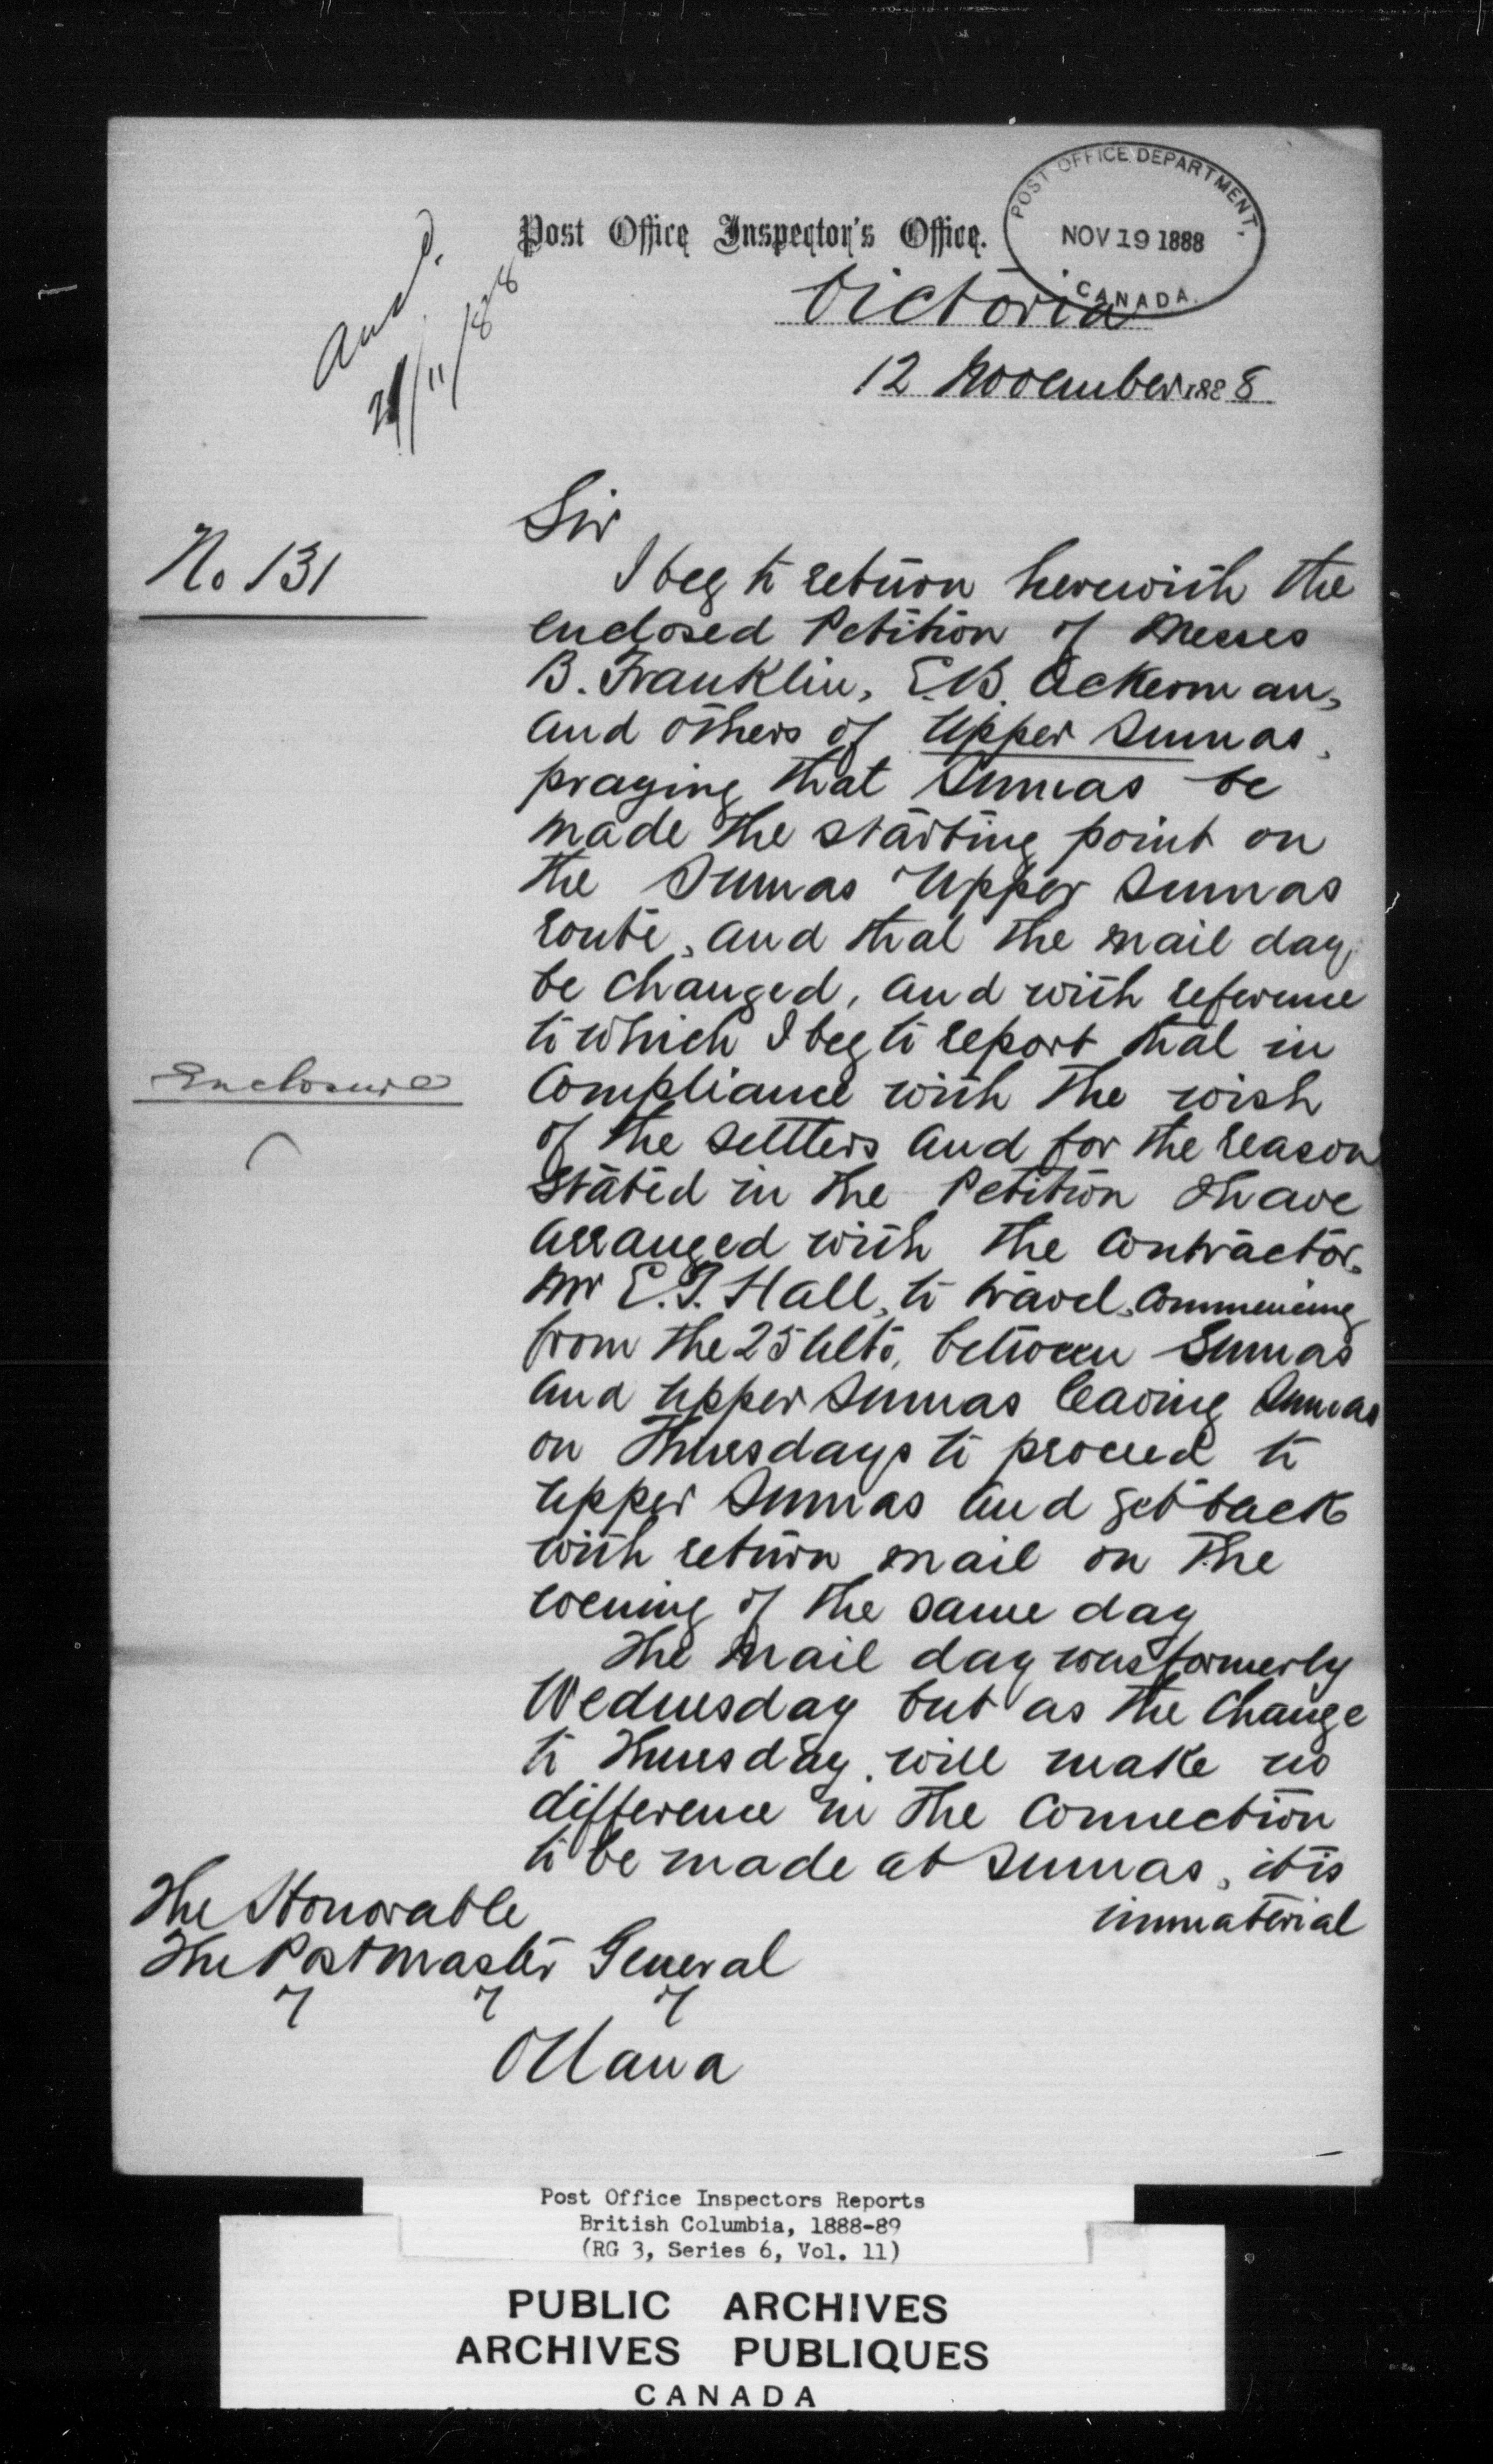 Post Office Inspector's Office.
POST OFFICE DEPARTMENT.
NOV 19 1888
CANADA.
Victoria
12 November 1888
Ansd.
21/11/88
No 131
Sir
I beg to return herewith the
enclosed Petition of Messes
B. Franklin, E.B. Ackerman,
and others of Upper Sumas,
praying that Sumas be
made the starting point on
the Sumas Upper Sumas
route, and that the mail day
be changed, and with reference
to which I beg to report that in
Enclosure
compliance with the wish
of the settlers and for the reason
stated in the Petition I have
arranged with the Contractor,
Mr E.T. Hall, to travel, commencing
from the 25 Ulto, between Sumas
and Upper Sumas leaving Sumas
on Thursdays to proceed to
Upper Sumas and get back
with return mail on the
evening of the same day
The mail day was formerly
Wednesday but as the change
to Thursday will make no
difference in the connection
to be made at Sumas, it is
immaterial
The Honorable
The Postmaster General
Ottawa
Post Office Inspectors Reports
British Columbia, 1888-89
(RG 3, Series 6, Vol. 11)
PUBLIC ARCHIVES
ARCHIVES PUBLIQUES
CANADA